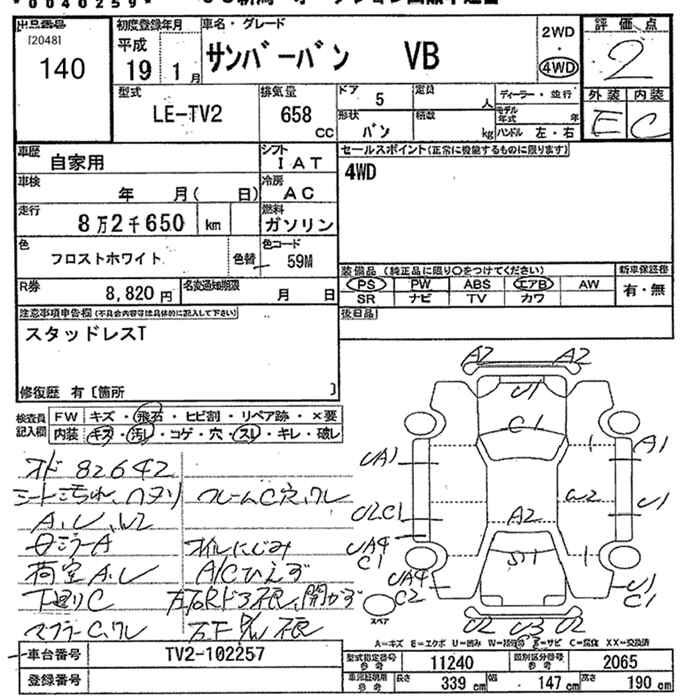 *0040259*
出品番号
[2048]
140
初度登録年月
平成
19 1月
車名・グレード
サンバーバン VB
2WD
4WD
評価点
2
外装 内装
E C
型式
LE-TV2
排気量
658 cc
ドア 5
定員 人
形状 バン
積載 kg
ディーラー・並行
モデル年式 年
ハンドル 左・右
車歴
自家用
シフト
IAT
車検
年 月( 日)
冷房
AC
走行
8万2千650 km
燃料
ガソリン
色
フロストホワイト
色替
色コード
59M
R券
8,820円
名変通知期限
月 日
セールスポイント(正常に機能するものに限ります)
4WD
装備品 (純正品に限り○をつけてください)
PS PW ABS エアB AW
SR ナビ TV カワ
新車保証書
有・無
後日品
注意事項申告欄(不具合内容等は具体的に記入して下さい)
スタッドレスT
修復歴 有〔箇所 〕
検査員記入欄
FW キズ・飛石・ヒビ割・リペア跡・×要
内装 キズ・汚れ・コゲ・穴・スレ・キレ・破レ
メド 82642
シート汚れ、ヘタリ フレームC穴、クレ
A、U、W2
オイルにじみ
荷室A、U A/Cひえず
下廻りC
マフラーC、クレ
A2 A2
U1
C1
UA1
A1
U2C1
W2
U1
A2
UA4
C1
S1
UA4
C2
U1
C1
スペア
U2 U3 U2
C2
A=キズ E=エクボ U=凹み W=補修跡 S=サビ C=腐食 XX=交換済
車台番号
TV2-102257
登録番号
型式指定番号 参考
11240
類別区分番号 参考
2065
車検証明用 参考
長さ 339 cm
幅 147 cm
高さ 190 cm